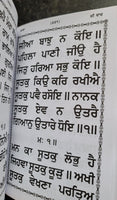 ਜੀਆ ਬਾਝੁ ਨ ਕੋਇ ॥
ਪਹਿਲਾ ਪਾਣੀ ਜੀਉ ਹੈ
ਜਿਤੁ ਹਰਿਆ ਸਭੁ ਕੋਇ ॥
ਸੂਤਕੁ ਕਿਉ ਕਰਿ ਰਖੀਐ
ਸੂਤਕੁ ਪਵੈ ਰਸੋਇ ॥ ਨਾਨਕ
ਸੂਤਕੁ ਏਵ ਨ ਉਤਰੈ
ਗਿਆਨੁ ਉਤਾਰੇ ਧੋਇ ॥੧॥
ਮਃ ੧ ॥
ਮਨ ਕਾ ਸੂਤਕੁ ਲੋਭੁ ਹੈ
ਜਿਹਵਾ ਸੂਤਕੁ ਕੂੜੁ ॥ ਅਖੀ
ਸੂਤਕੁ ਵੇਖਣਾ ਪਰ ਤ੍ਰਿਅ